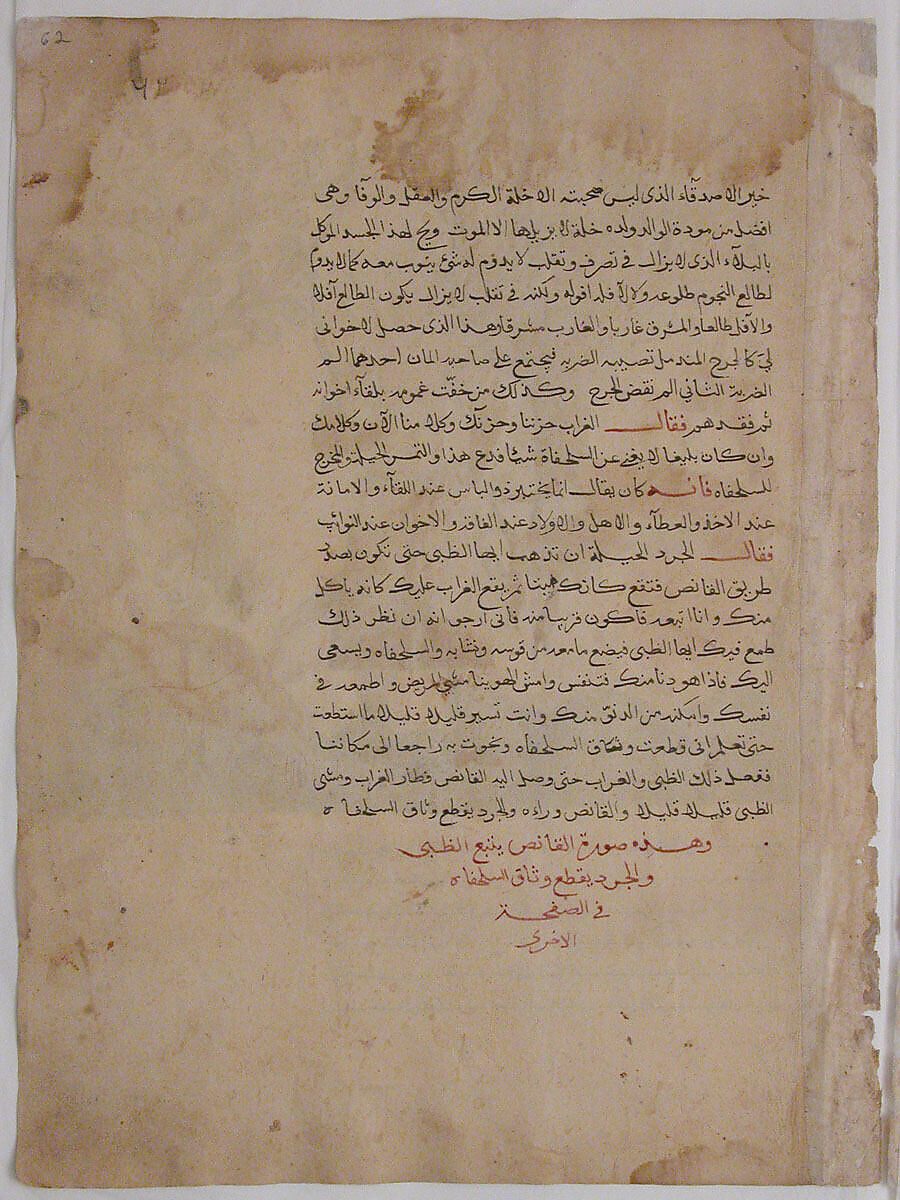 62
٦٢
خير الاصدقآء الذى ليس صحبته الا خلة الكرم والعقل والوفا وهى
افضل من مودة الوالد ولده خلة لا يزيلها الا الموت ويح لهذا الجسد الموكل
بالبلآء الذى لا يزال فى تصرف وتقلب لا يدوم له شئ يثوب معه كما لا يدوم
لطالع النجوم طلوعه ولا لآفلها افوله ولكنه فى تقلب لا يزال يكون الطالع آفلا
والآفل طالعا والمشرق غاربا والغارب مشرقا وهذا الذى حصل لاخوانى
لى كالجرح المندمل تصيبه الضربه فيجتمع على صاحبه المان احدهما الم
الضربة الثانى الم نقض الجرح وكذلك من خفّت غمومه بلقآء اخوانه
ثم فقدهم فقال الغراب حزننا وحزنك وكلامنا الآن وكلامك
وان كان بليغا لا يغنى عن السلحفاة شيئا فدع هذا والتمس الحيلة والمخرج
للسلحفاه فانه كان يقال انما يختبر ذو الباس عند اللقآء والامانة
عند الاخذ والعطآء والاهل والاولاد عند الفاقه والاخوان عند النوائب
فقال الجرد الحيلة ان تذهب ايها الظبى حتى تكون بصدر
طريق القانص فتقع كانك ميتا ثم يقع الغراب عليك كانه ياكل
منك وانا اتبعه فاكون قريبا منه فانى ارجو انه ان نظر ذلك
طمع فيك ايها الظبى فيضع ما معه من قوسه ونشابه والسلحفاه ويسعى
اليك فاذا هو دنا منك فتنفس وامش الهوينا مشى المريض واطمعه فى
نفسك وامكنه من الدنو منك وانت تسير قليلا قليلا ما استطعت
حتى تعلم انى قطعت وثاق السلحفاه ونجوت به راجعا الى مكاننا
ففعل ذلك الظبى والغراب حتى وصل اليه القانص فطار الغراب ومشى
الظبى قليلا قليلا والقانص وراءه والجرد يقطع وثاق السلحفاه
وهذه صورة القانص يتبع الظبى
والجرد يقطع وثاق السلحفاه
فى الصفحة
الاخرى